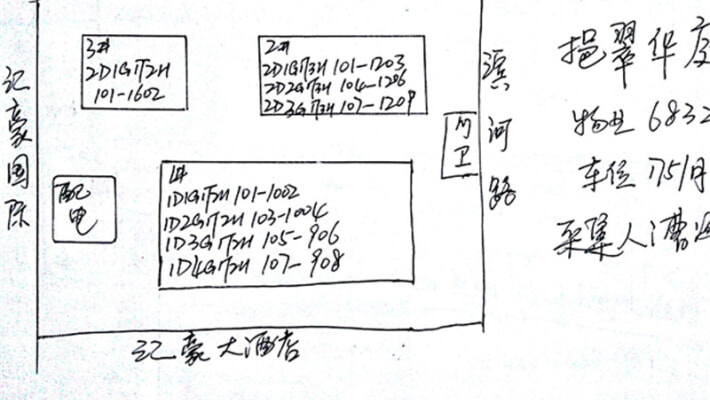 3#
2D1G1T2H
101-1602
2#
2D1G1T3H 101-1203
2D2G1T3H 104-1206
2D3G1T3H 107-1209
门卫
滨河路
记豪国际
配电
1#
1D1G1T2H 101-1002
1D2G1T2H 103-1004
1D3G1T2H 105-906
1D4G1T2H 107-908
记豪大酒店
挹翠华庭
物业 6832
车位 175/月
采集人 曹